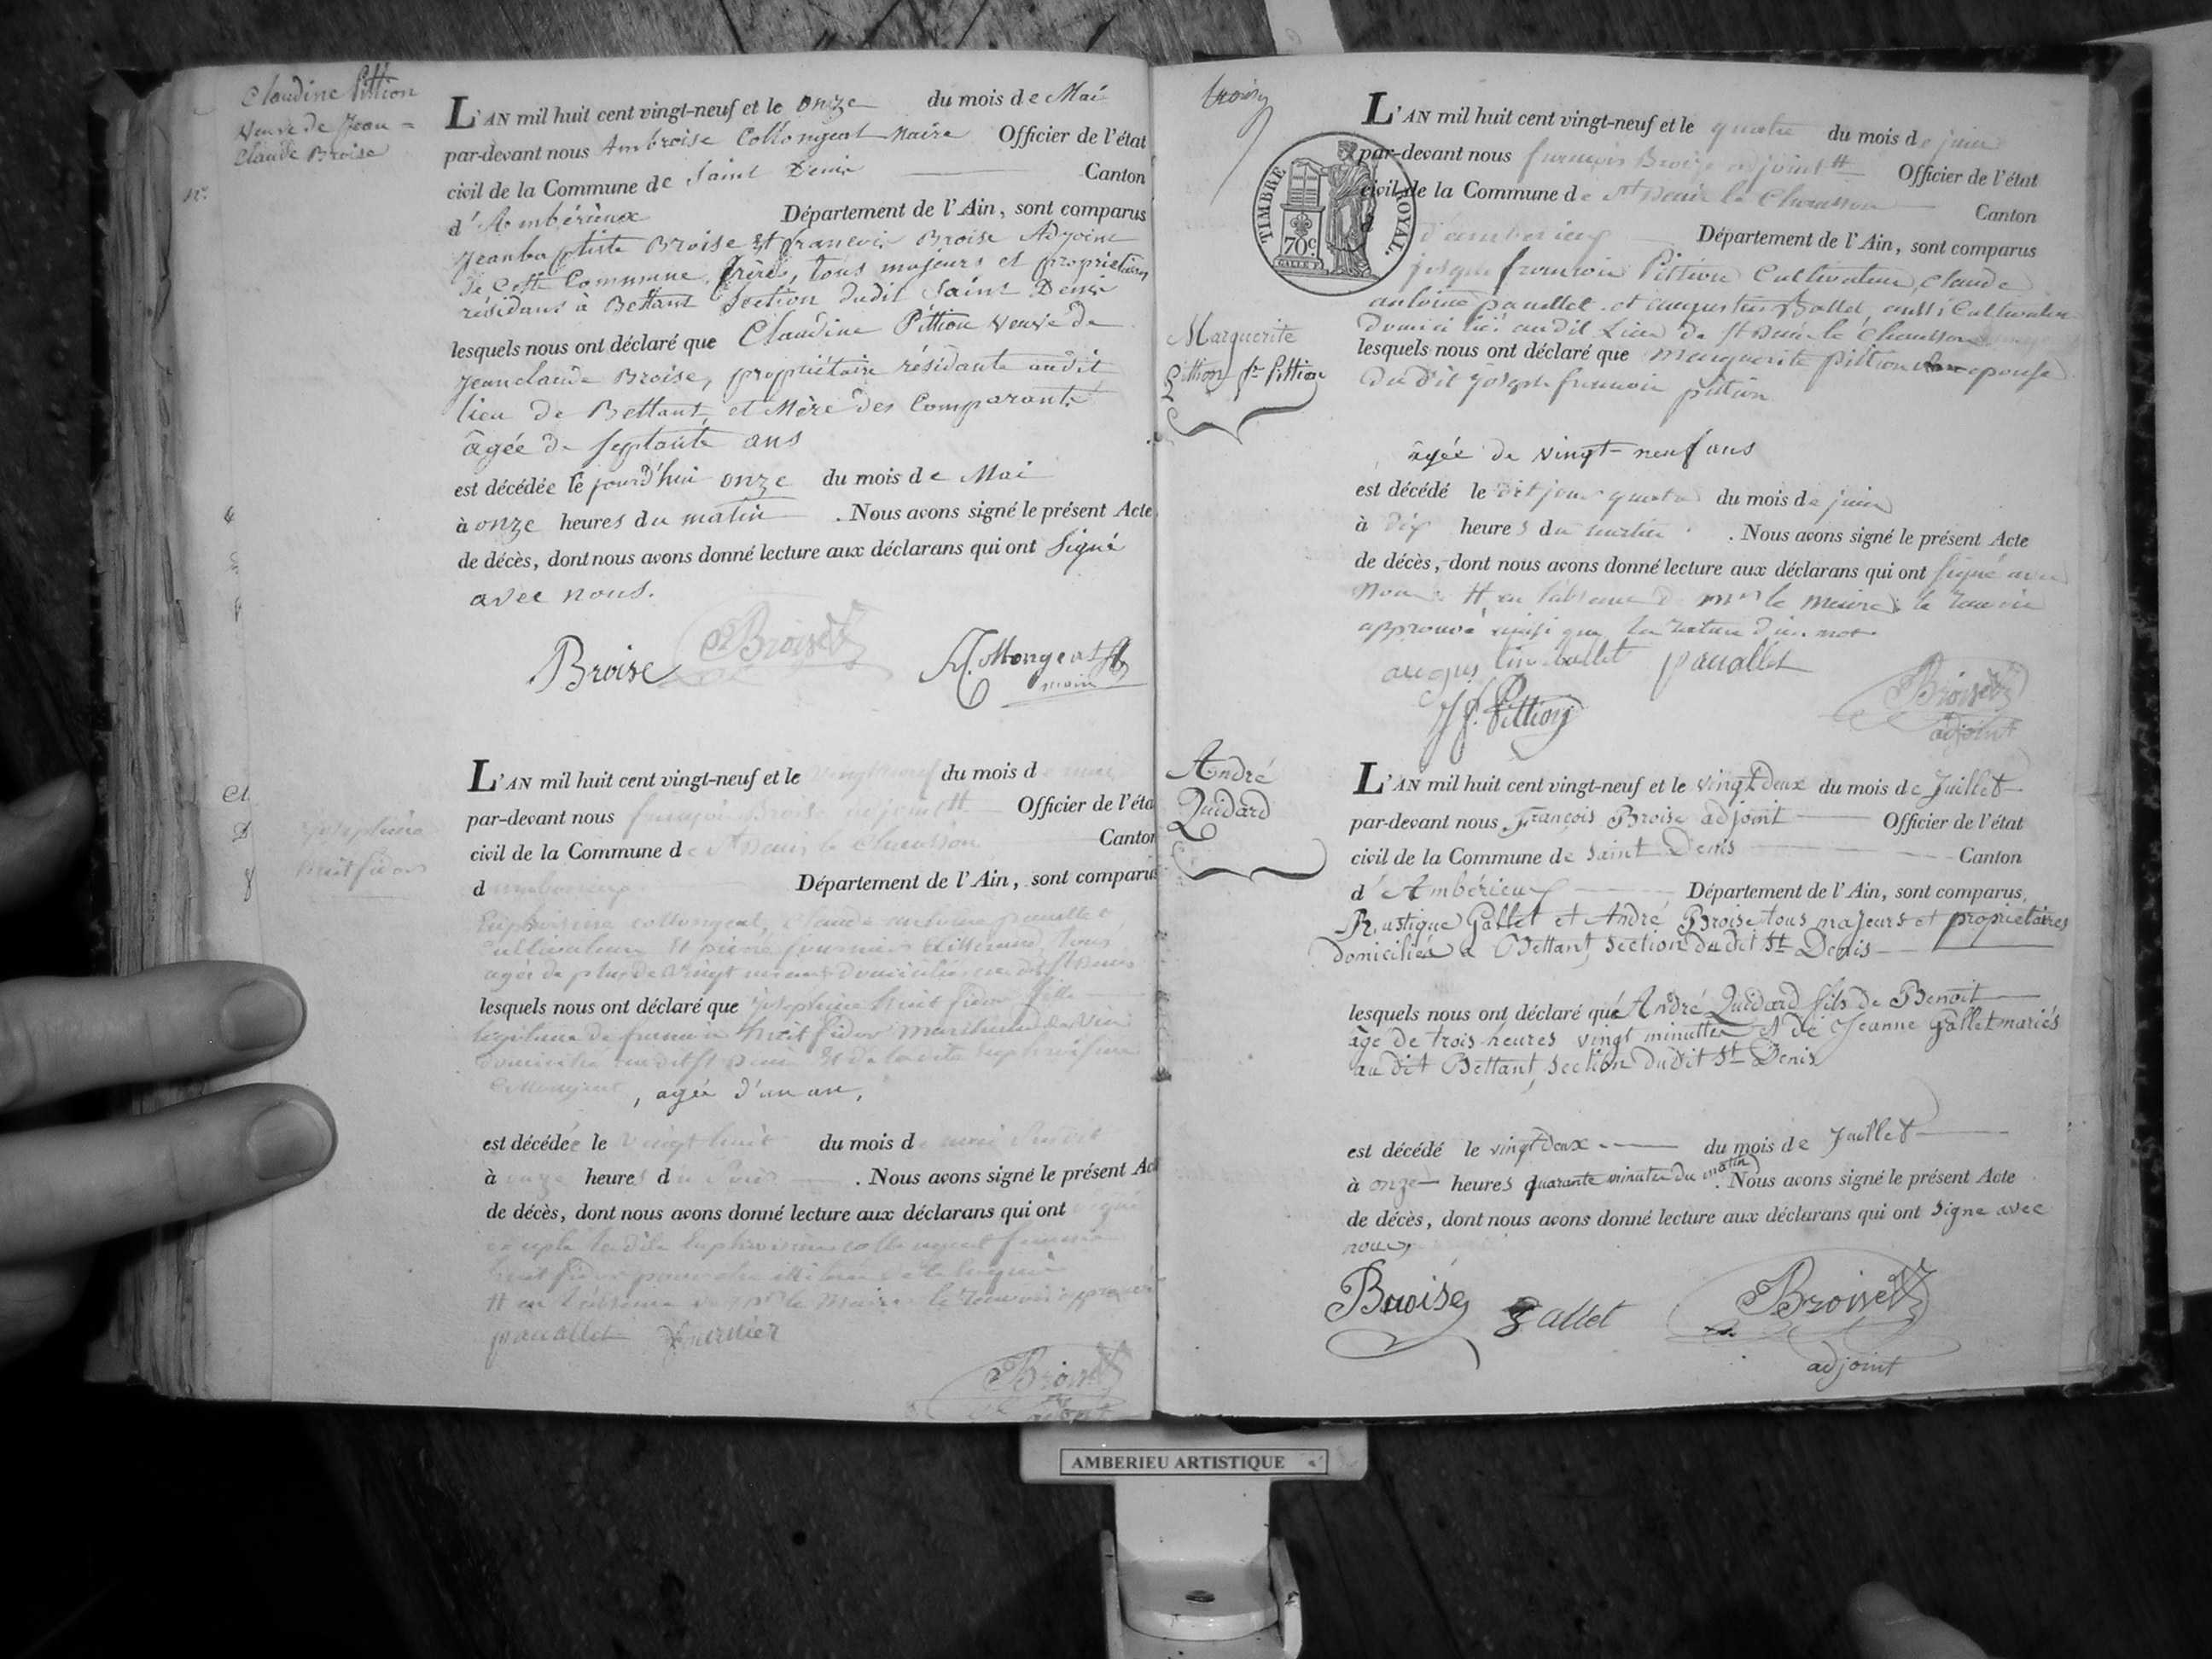 Claudine Pittion
Veuve de Jean =
Claude Broise
L'AN mil huit cent vingt-neuf et le onze du mois de Mai
par-devant nous Ambroise Collongeat Maire Officier de l'état
civil de la Commune de Saint Denis Canton
d'Ambérieux Département de l'Ain, sont comparus
Jeanbaptiste Broise et francois Broise Adjoint
de cette Commune, frères, tous majeurs et proprietaires
résidans à Bettant Section dudit Saint Denis
lesquels nous ont déclaré que Claudine Pittion Veuve de
Jeanclaude Broise, propriétaire résidante audit
lieu de Bettant, et Mère des Comparants
âgée de septante ans
est décédée le jourd'hui onze du mois de Mai
à onze heures du matin . Nous avons signé le présent Acte
de décès, dont nous avons donné lecture aux déclarans qui ont Signé
avec nous.
Broise Broise A. Collongeat
maire
Josephine
huit fidor
L'AN mil huit cent vingt-neuf et le vingt neuf du mois de mai
par-devant nous françois Broise adjoint # Officier de l'éta
civil de la Commune de St Denis le Chausson Canton
d'amberieux Département de l'Ain, sont comparus
Euphrosine collongeat, Claude antoine panallet
Cultivateur et pierre fournier tous
agés de plus de vingt un ans domiciliés au dit St Denis
lesquels nous ont déclaré que Josephine huit fidor fille
legitime de huit fidor marchand de vin
domicilié audit St Denis et de la dite Euphrosine
Collongeat, agée d'un an,
est décédée le vingt huit du mois de mai Susdit
à onze heures du Soir . Nous avons signé le présent Act
de décès, dont nous avons donné lecture aux déclarans qui ont signé
excepté la dite Euphrosine collongeat femme
huit fidor pour être illitérée
# en l'absence de Mr le Maire le renvoi approuvé
panallet fournier
Broise
adjoint
trois
TIMBRE ROYAL.
70 c.
L'AN mil huit cent vingt-neuf et le quatre du mois de juin
par-devant nous francois Broise adjoint # Officier de l'état
civil de la Commune de St Denis le Chausson Canton
d'amberieux Département de l'Ain, sont comparus
joseph francois Pittion Cultivateur, Claude
antoine panallet et augustin Ballet, aussi Cultivateurs
domicilié audit Lieu de St Denis le Chausson
Marguerite
Pittion fe Pittion
lesquels nous ont déclaré que Marguerite pittion epouse
du dit joseph francois pittion
âgée de vingt-neuf ans
est décédé le dit jour quatre du mois de juin
à dix heures du matin . Nous avons signé le présent Acte
de décès, dont nous avons donné lecture aux déclarans qui ont signé avec
Nous # en l'absence de Mr le Maire le renvoi
approuvé ainsi que la rature d'un mot
augustin ballet panallet
J f. Pittion
Broise
adjoint
André
Quidard
L'AN mil huit cent vingt-neuf et le vingt Deux du mois de Juillet
par-devant nous François Broise adjoint Officier de l'état
civil de la Commune de Saint Denis Canton
d'Ambérieux Département de l'Ain, sont comparus,
Rustique Gallet et André Broise tous majeurs et propriétaires
domiciliés à Bettant, Section du dit St Denis
lesquels nous ont déclaré que André Quidard fils de Benoit
âgé de trois heures vingt minuttes et de Jeanne Gallet mariés
au dit Bettant, section du dit St Denis
est décédé le vingt Deux du mois de Juillet
à onze heures quarante minutes du matin . Nous avons signé le présent Acte
de décès, dont nous avons donné lecture aux déclarans qui ont Signe avec
nous
Broise gallet Broise
adjoint
AMBERIEU ARTISTIQUE